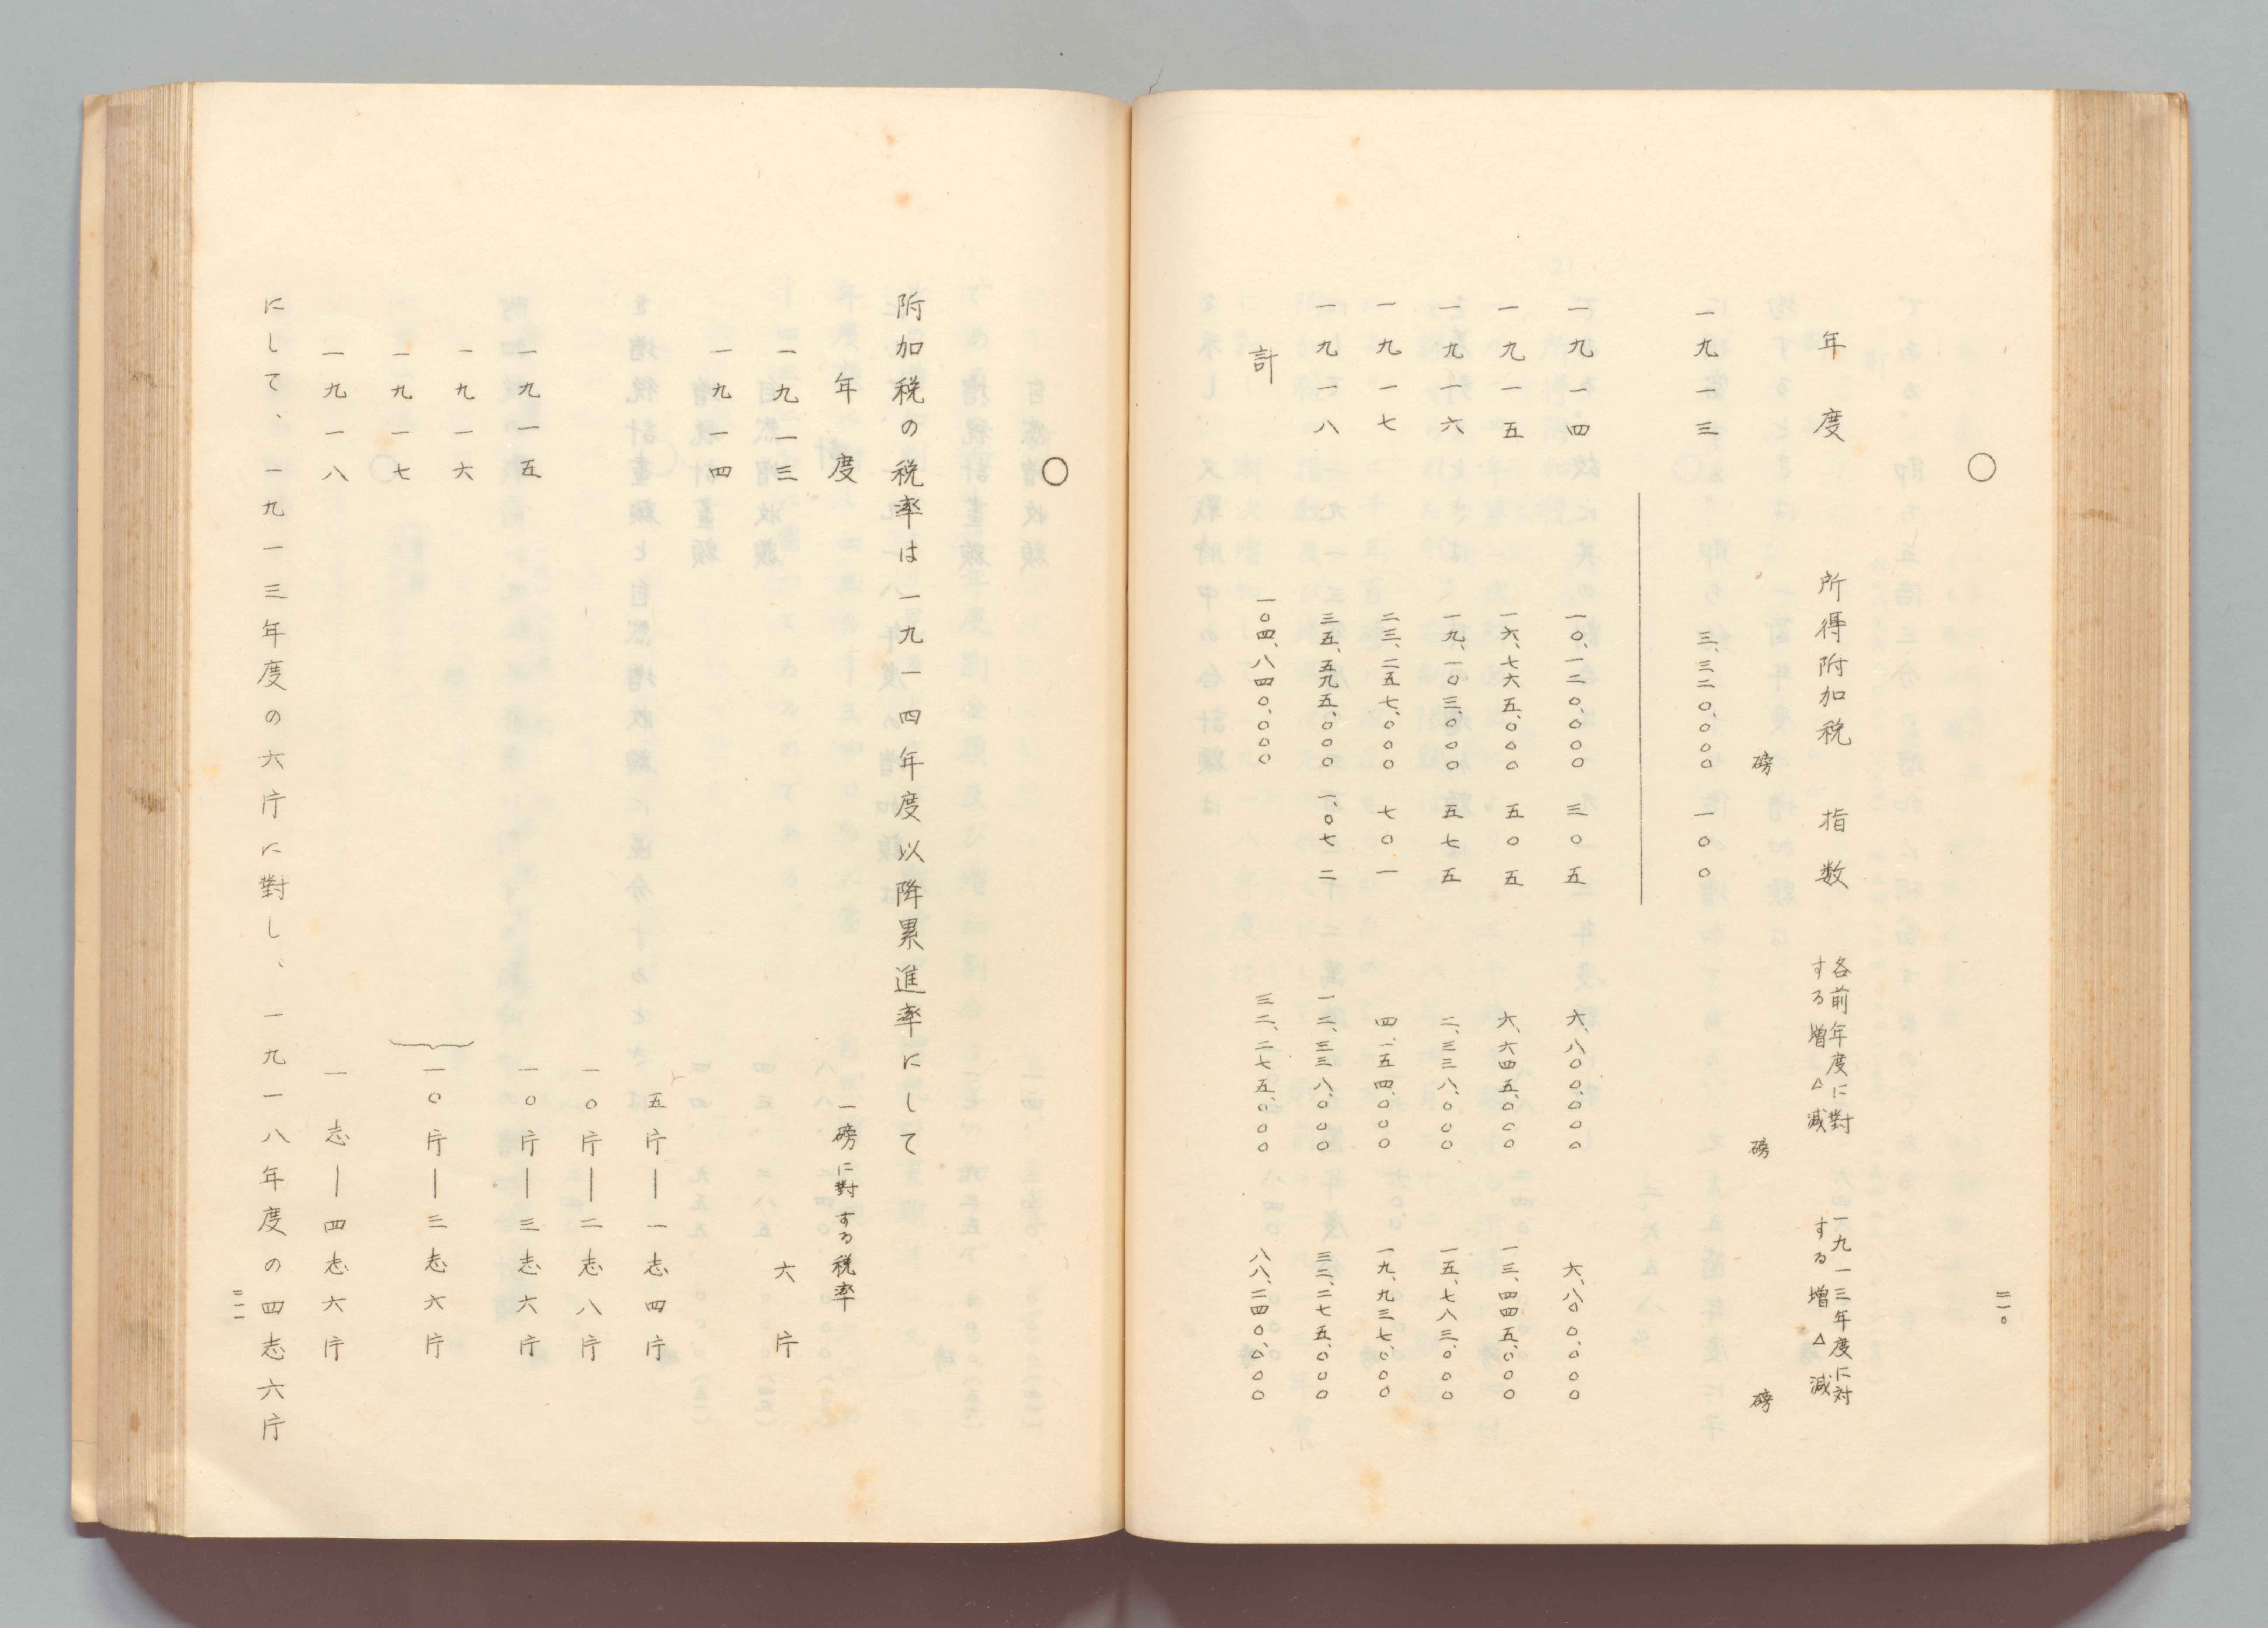 ○
年度 所得附加税 指数 各前年度に對する増△減 一九一三年度に対する増△減
磅 磅 磅
一九一三 三、三二〇、〇〇〇 一〇〇
一九一四 一〇、一二〇、〇〇〇 三〇五 六、八〇〇、〇〇〇 六、八〇〇、〇〇〇
一九一五 一六、七六五、〇〇〇 五〇五 六、六四五、〇〇〇 一三、四四五、〇〇〇
一九一六 一九、一〇三、〇〇〇 五七五 二、三三八、〇〇〇 一五、七八三、〇〇〇
一九一七 二三、二五七、〇〇〇 七〇一 四、一五四、〇〇〇 一九、九三七、〇〇〇
一九一八 三五、五九五、〇〇〇 一、〇七二 一二、三三八、〇〇〇 三二、二七五、〇〇〇
計 一〇四、八四〇、〇〇〇 三二、二七五、〇〇〇 八八、二四〇、〇〇〇
二一〇
○
附加税の税率は一九一四年度以降累進率にして
年度 一磅に對する税率
一九一三 六片
一九一四
五片—一志四片
一〇片—二志八片
一九一五 一〇片—三志六片
一九一六
一九一七 一〇片—三志六片
一九一八 一志—四志六片
にして、一九一三年度の六片に對し、一九一八年度の四志六片
二一一